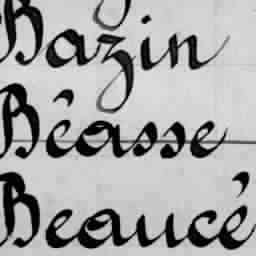 Bazin
Béasse
Beaucé